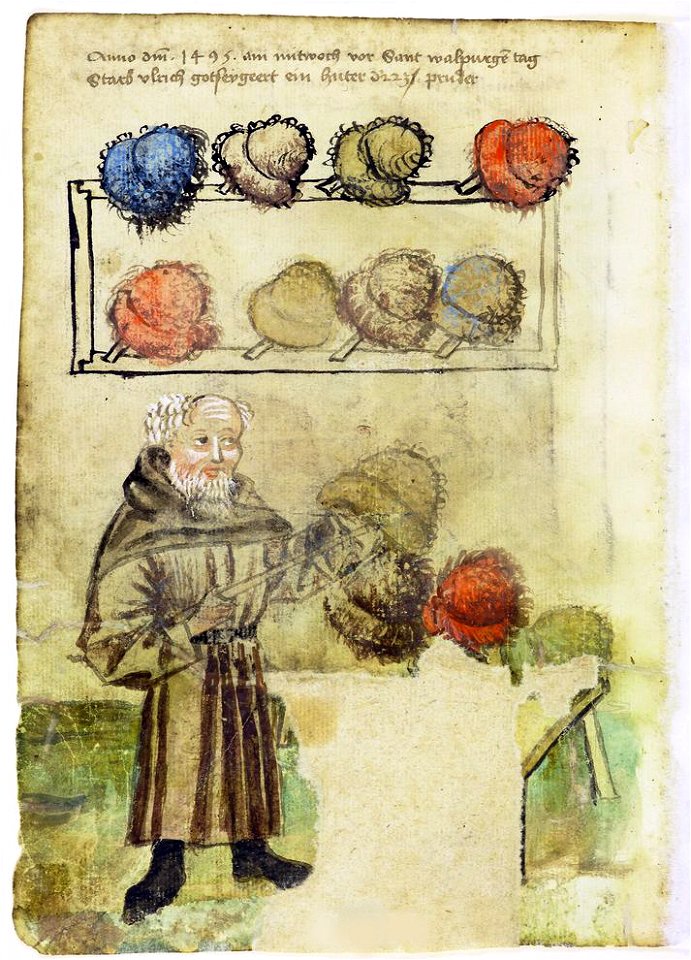 Anno dm̄. 1495. am mitwoch vor Sant walpurgē tag
Starb vlrich gotseygeert ein huter d 223 pruder